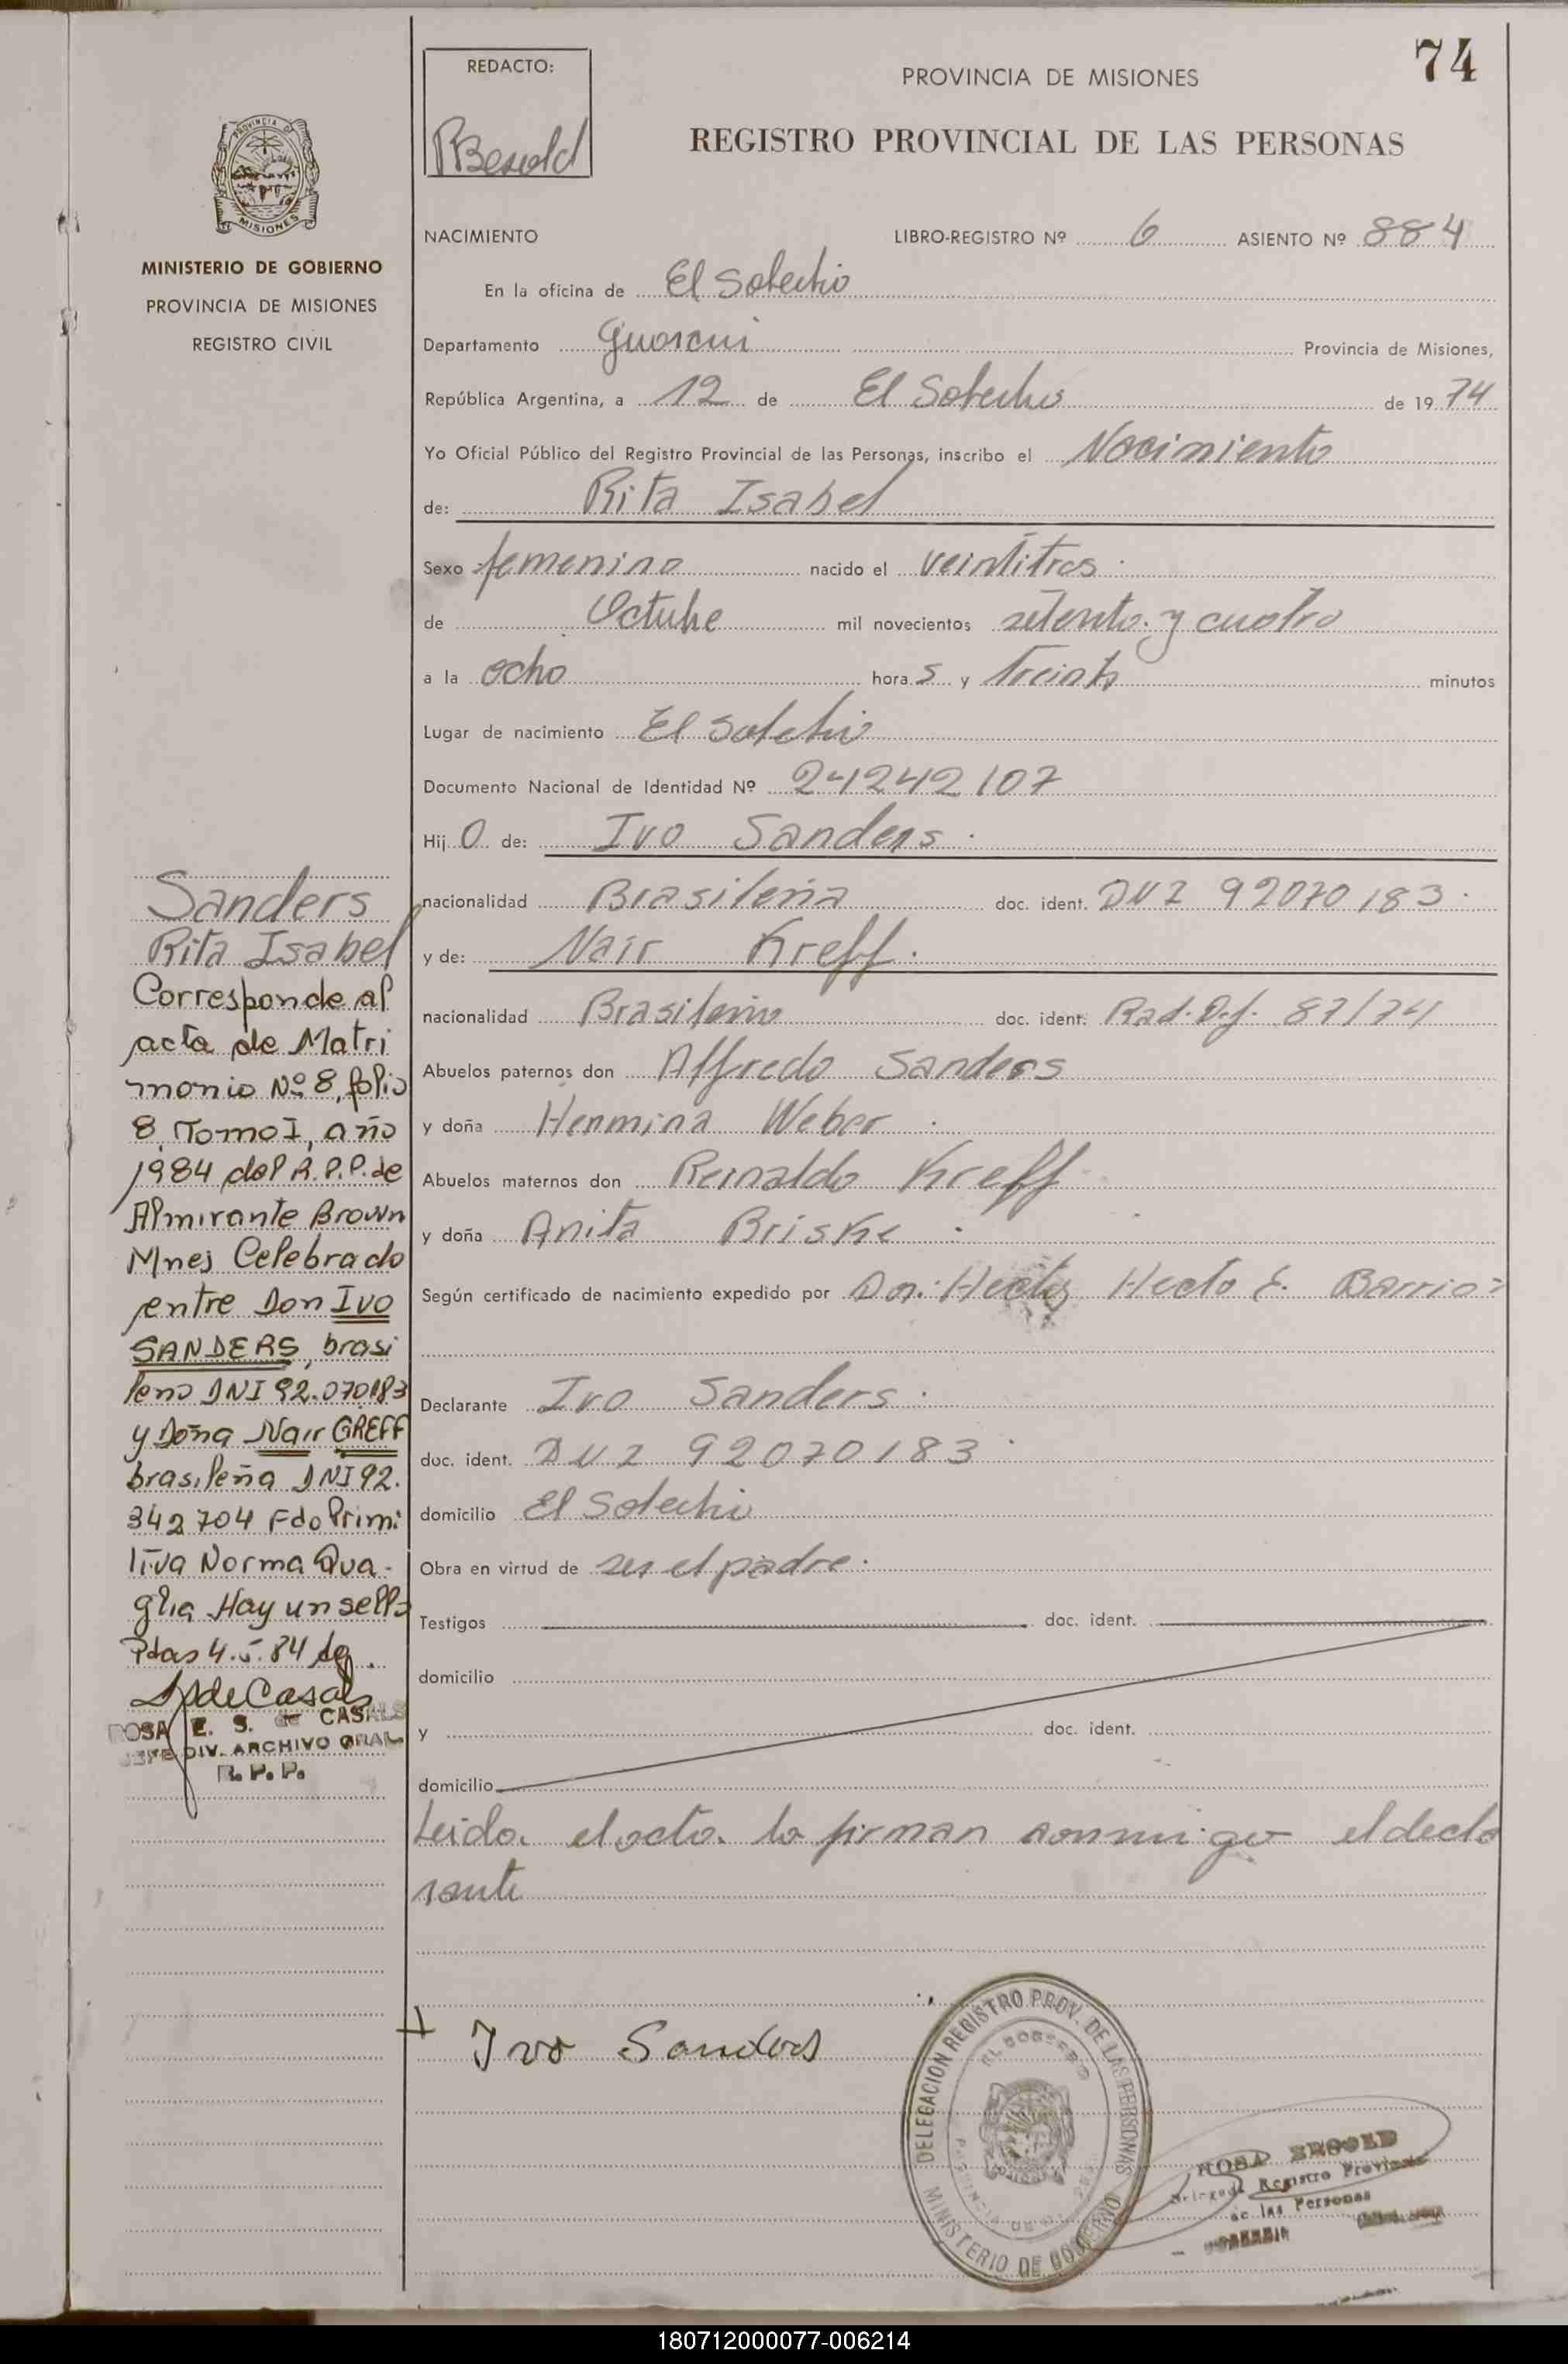 74
REDACTO:
PROVINCIA DE MISIONES
REGISTRO PROVINCIAL DE LAS PERSONAS
PROVINCIA DE
MISIONES
MINISTERIO DE GOBIERNO
PROVINCIA DE MISIONES
REGISTRO CIVIL
NACIMIENTO LIBRO-REGISTRO Nº 6 ASIENTO Nº 884
En la oficina de El Soberbio
Departamento Guarani Provincia de Misiones,
República Argentina, a 12 de El Soberbio de 19 74
Yo Oficial Público del Registro Provincial de las Personas, inscribo el Nacimiento
de: Rita Isabel
Sexo femenino nacido el veintitres
de Octubre mil novecientos setenta y cuatro
a la ocho hora s y treinta minutos
Lugar de nacimiento El Soberbio
Documento Nacional de Identidad Nº 24242107
Hij o de: Ivo Sanders
nacionalidad Brasileña doc. ident. DNI 92070183
y de: Nair Kreff
nacionalidad Brasileña doc. ident. Rad. D.J. 87/74
Abuelos paternos don Alfredo Sanders
y doña Henmina Weber
Abuelos maternos don Reinaldo Kreff
y doña Anita Briske
Según certificado de nacimiento expedido por Dn. Hecto E. Barrio
Declarante Ivo Sanders
doc. ident. DNI 92070183
domicilio El Soberbio
Obra en virtud de ser el padre
Testigos doc. ident.
domicilio
y doc. ident.
domicilio
Leida el acta la firman conmigo el decla
rante
Ivo Sanders
Sanders
Rita Isabel
Corresponde al
acta de Matri
monio Nº 8, folio
8 Tomo I, año
1984 del R.P.P. de
Almirante Brown
Mnes Celebrado
entre Don Ivo
SANDERS, brasi
leño DNI 92.070183
y Doña Nair GREFF
brasileña DNI 92.
342704 Fdo Primi
tiva Norma Qua-
glia Hay un sello
Pdas 4.5.84
S de Casals
ROSA E. S. de CASALS
JEFE DIV. ARCHIVO GRAL
R. P. P.
DELEGACION REGISTRO PROV. DE LAS PERSONAS
MINISTERIO DE GOBIERNO
EL SOBERBIO
PROVINCIA DE MISIONES
ROSA BESOLD
Delegada Registro Provincial
de las Personas
180712000077-006214